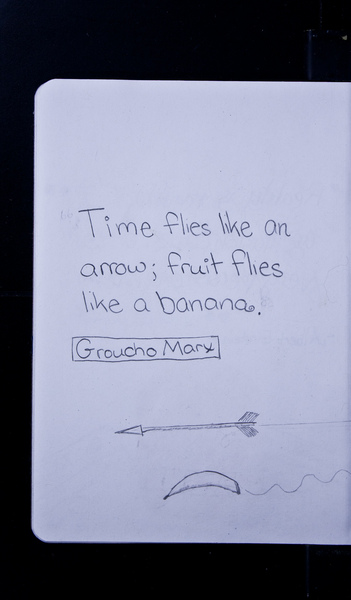 Time flies like an
arrow; fruit flies
like a banana.
Groucho Marx